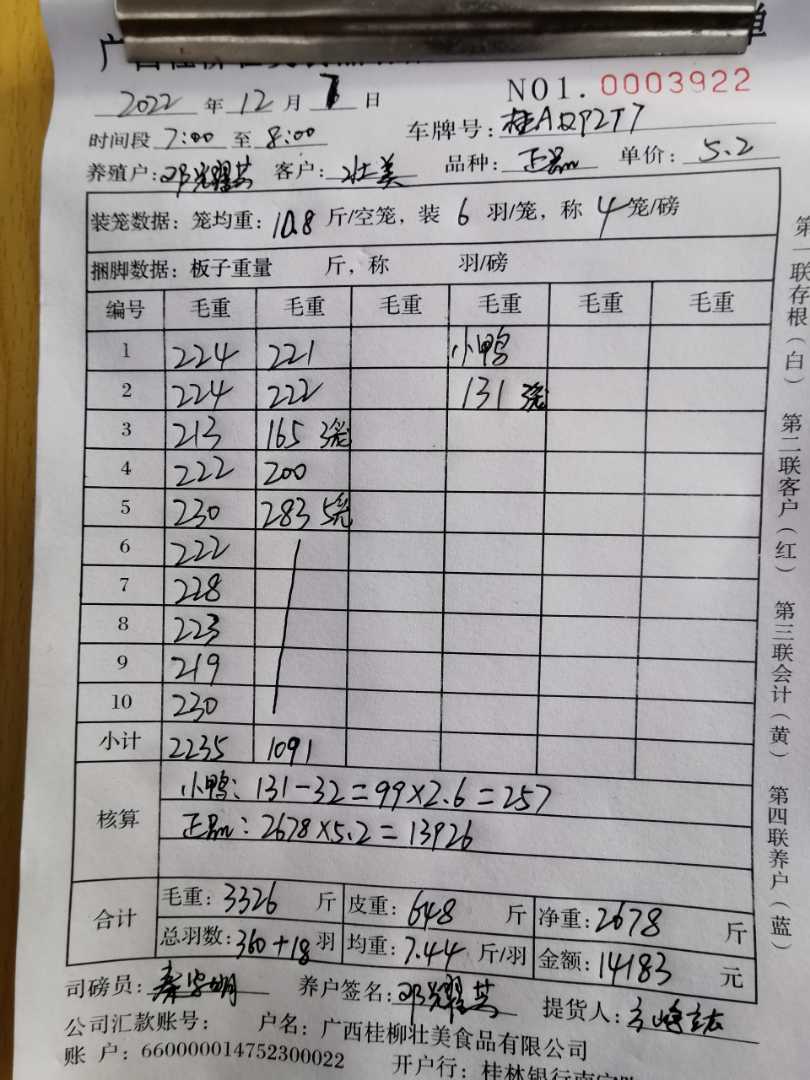 单
NO1. 0003922
2022 年 12 月 7 日
时间段 7:00 至 8:00 车牌号:
养殖户: 邓光耀芬 客户: 壮美 品种: 正品 单价: 5.2
装笼数据: 笼均重: 10.8 斤/空笼, 装 6 羽/笼, 称 4 笼/磅
捆脚数据: 板子重量 斤, 称 羽/磅
编号 毛重 毛重 毛重 毛重 毛重 毛重
1 224 221 小鸭
2 224 222 131 3笼
3 213 165 3笼
4 222 200
5 230 283 5笼
6 222
7 228
8 223
9 219
10 230
小计 2235 1091
核算
小鸭: 131-32=99×2.6=257
正品: 2678×5.2=13926
合计
毛重: 3326 斤 皮重: 648 斤 净重: 2678 斤
总羽数: 360+18 羽 均重: 7.44 斤/羽 金额: 14183 元
司磅员: 养户签名: 提货人:
公司汇款账号: 户名: 广西桂柳壮美食品有限公司
账 户: 660000014752300022 开户行: 桂林银行南宁
第一联存根(白) 第二联客户(红) 第三联会计(黄) 第四联养户(蓝)